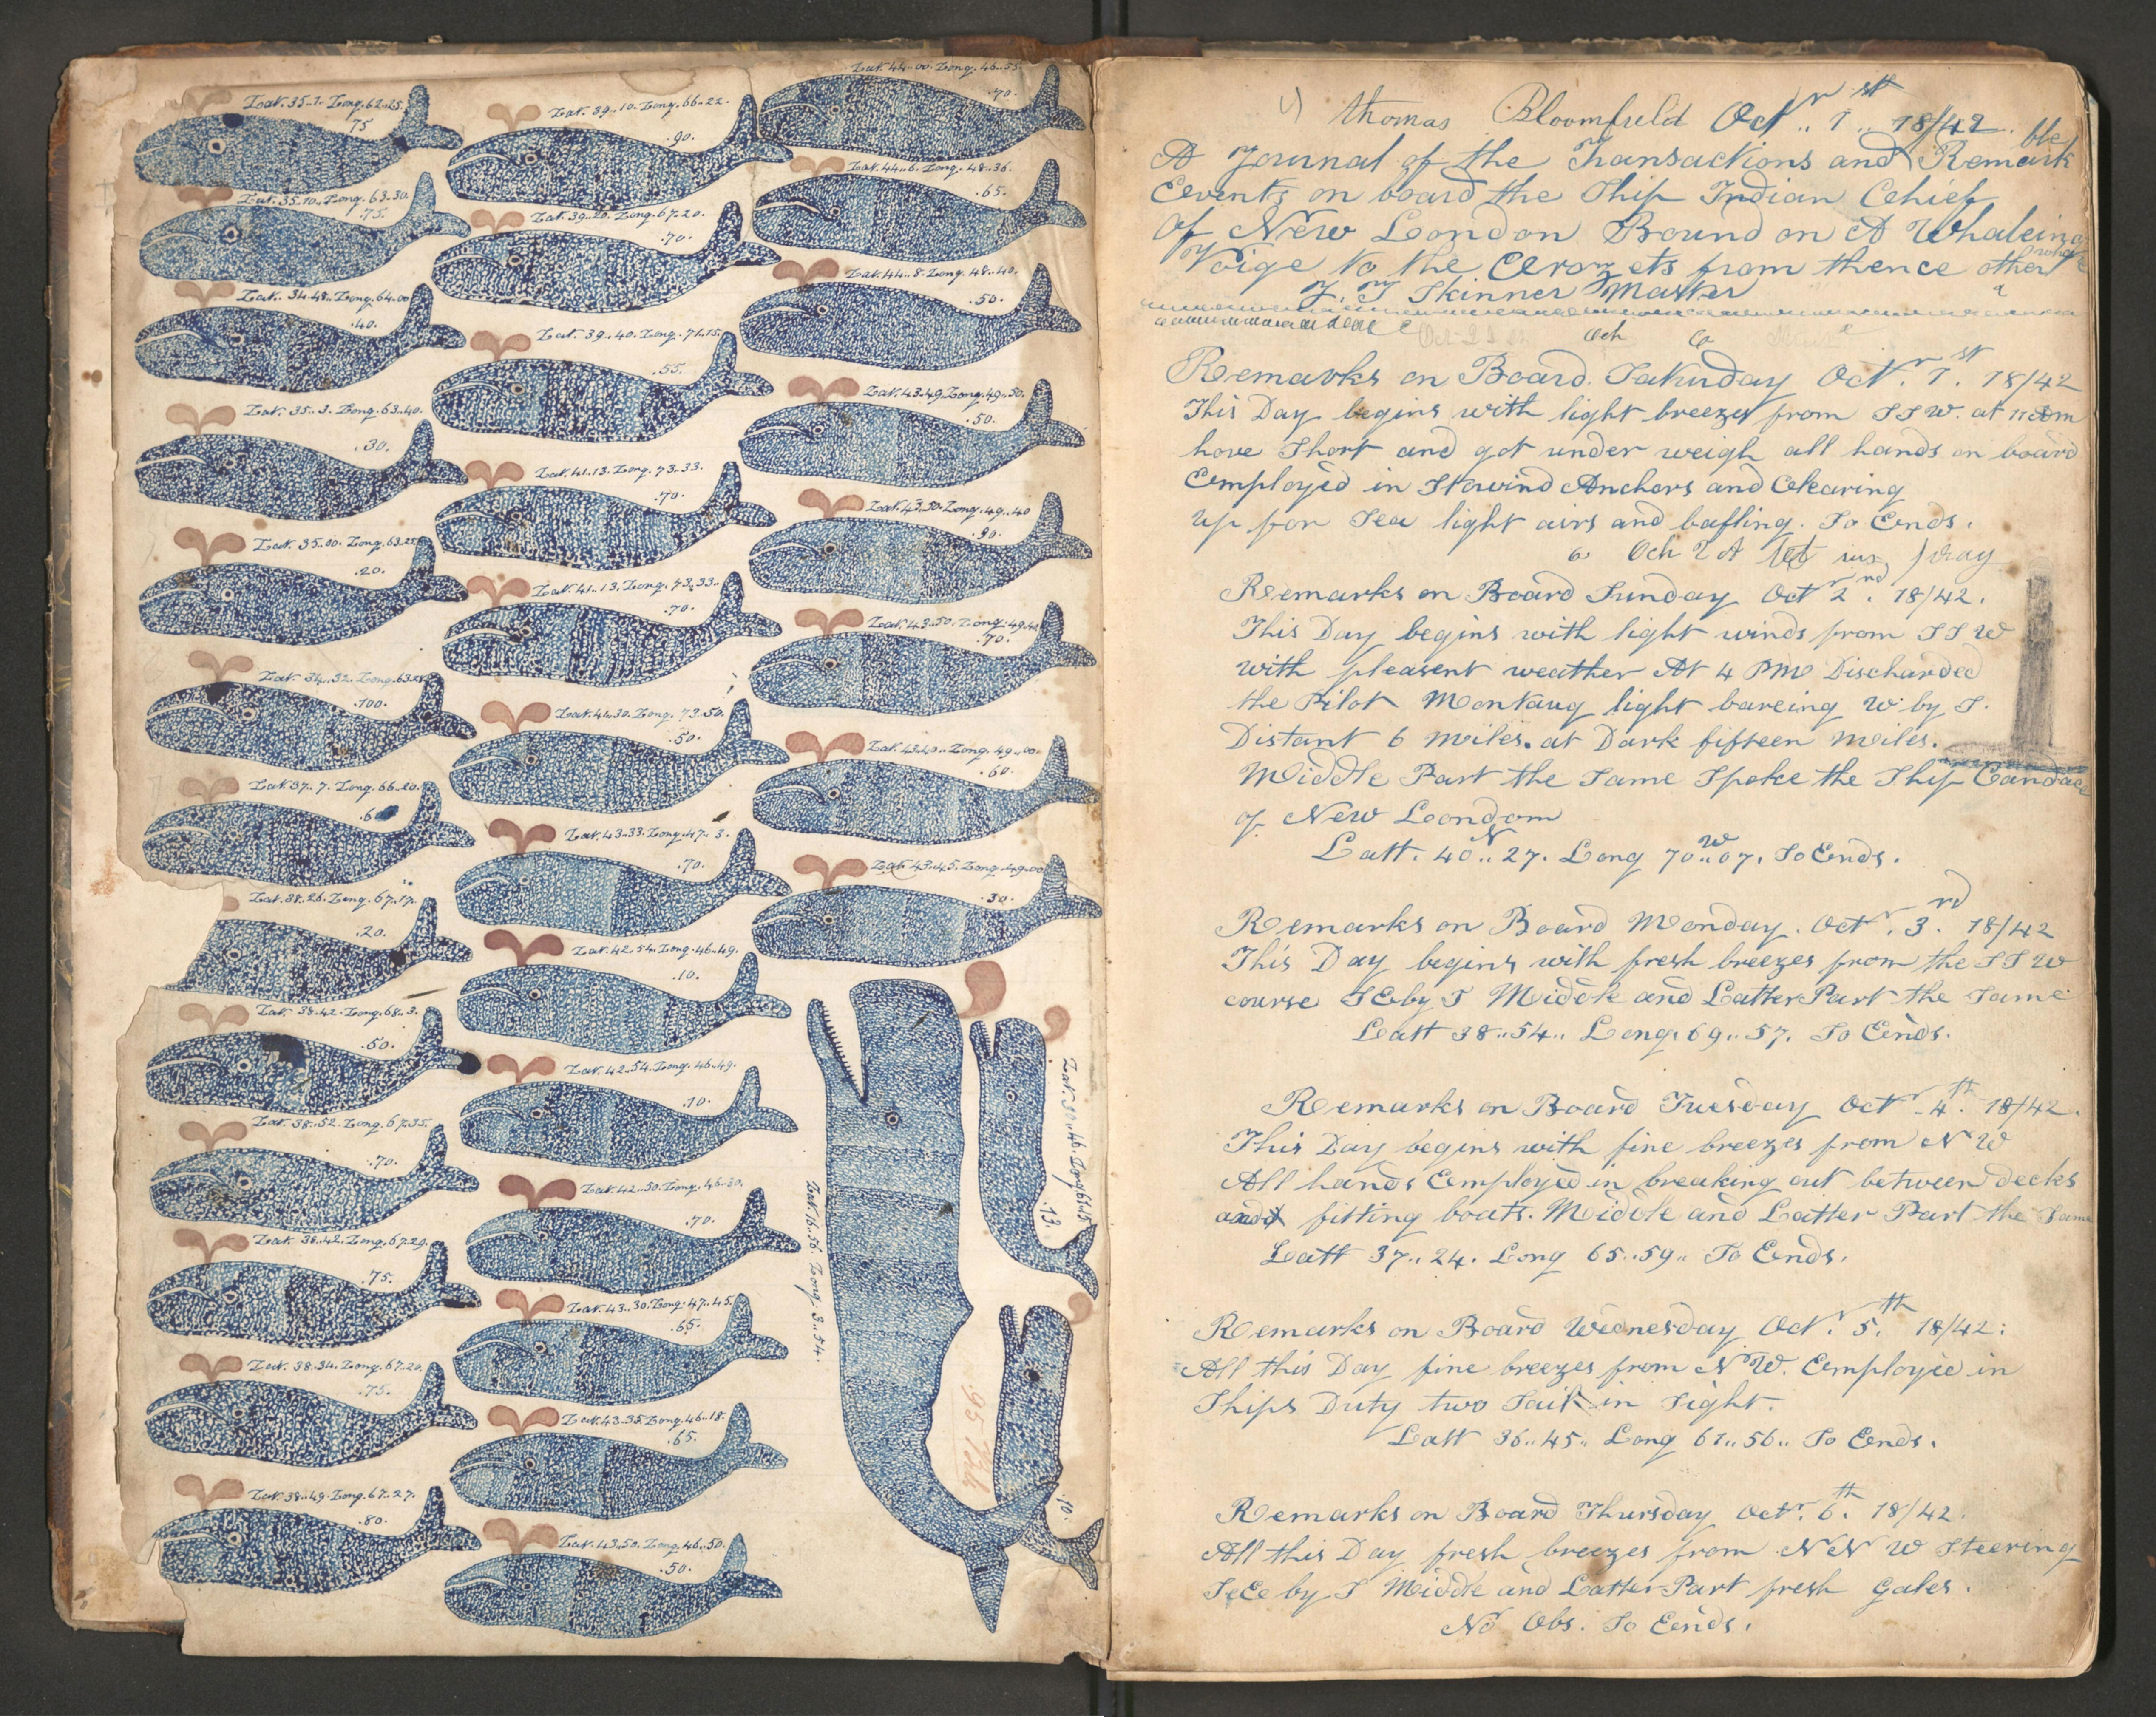 Lat. 35..1. Long. 62..25.
75
Lat. 35..10.. Long. 63..30.
.75.
Lat. 34..48.. Long. 64..00
.40.
Lat. 35..3. Long. 63..40.
.30.
Lat. 35..00. Long. 63..25
.20.
Lat. 34..32. Long. 63..25
.100.
Lat. 37..7. Long. 66..20.
.60
Lat. 38..26. Long. 67..17.
.20.
Lat. 38..42. Long. 68..3.
.50.
Lat. 38..52. Long. 67..35.
.70.
Lat. 38..42. Long. 67..29.
.75.
Lat. 38..34. Long. 67..20.
.75.
Lat. 38..49. Long. 67..27.
.80.
Lat. 39..10. Long. 66..22.
.90.
Lat. 39..20. Long. 67..20.
.70.
Lat. 39..40. Long. 71..15.
.55.
Lat. 41..13. Long. 73..33.
.70.
Lat. 41..13. Long. 73..33..
.70.
Lat. 41..30. Long. 73..50.
.50.
Lat. 43..33. Long. 47..3.
.70.
Lat. 42..54. Long. 46..49.
.10.
Lat. 42..54. Long. 46..49.
.10.
Lat. 42..50. Long. 46..30.
.70.
Lat. 43..30. Long. 47..45.
.65.
Lat. 43..35. Long. 46..18.
.65.
Lat. 43..50. Long. 46..50.
.50.
Lat. 44..00. Long. 46..55.
.70.
Lat. 44..6. Long. 48..36.
.65.
Lat. 44..8. Long. 48..40.
.50.
Lat. 43..49. Long. 49..50.
.50.
Lat. 43..50. Long. 49..40
.90.
Lat. 43..50. Long. 49..40
.70.
Lat. 43..40.. Long. 49..00.
.60.
Lat. 43..45. Long. 49..00
.30.
Lat. 16..56. Long. 3..54.
95
Lat. 30..46. Long. 61..15
.13.
.10.
Thomas Bloomfield Octr.. 1st.. 18/42.
A Journal of the Transactions and Remarkble
Events on board the Ship Indian Chief
Of New London Bound on A Whaleing
Voige to the Crozets from thence other
Skinner Master
Och
Remarks on Board. Saturday Octr. 1st. 18/42
This Day begins with light breezes from SSW. at 11 am
hove Short and got under weigh all hands on board
Employed in Stowind Anchors and Clearing
up for Sea light airs and bafling. So Ends.
Och
Remarks on Board Sunday Octr 2nd. 18/42.
This Day begins with light winds from SSW
with pleasent weather At 4 PM Discharded
the Pilot Montaug light bareing W by S.
Distant 6 miles. at Dark fifteen miles.
Middle Part the Same Spoke the Ship Candace
of New London
Latt. 40N..27. Long 70W..07. So Ends.
Remarks on Board Monday. Octr. 3rd. 18/42
This Day begins with fresh breezes from the SSW
course SEby S Middle and Latter Part the Same
Latt 38..54.. Long. 69..57. So Ends.
Remarks on Board Tuesday Octr. 4th. 18/42.
This Day begins with fine breezes from NW
All hands Employed in breaking out between decks
and fitting boats. Middle and Latter Part the Same
Latt 37..24. Long 65..59.. So Ends.
Remarks on Board Wednesday Octr. 5th. 18/42:
All this Day fine breezes from NW. Employed in
Ships Duty two Sail in Sight.
Latt 36..45.. Long 61..56.. So Ends.
Remarks on Board Thursday Octr. 6th. 18/42.
All this Day fresh breezes from NNW Steering
SEE by S Middle and Latter Part fresh Gales.
No Obs. So Ends.